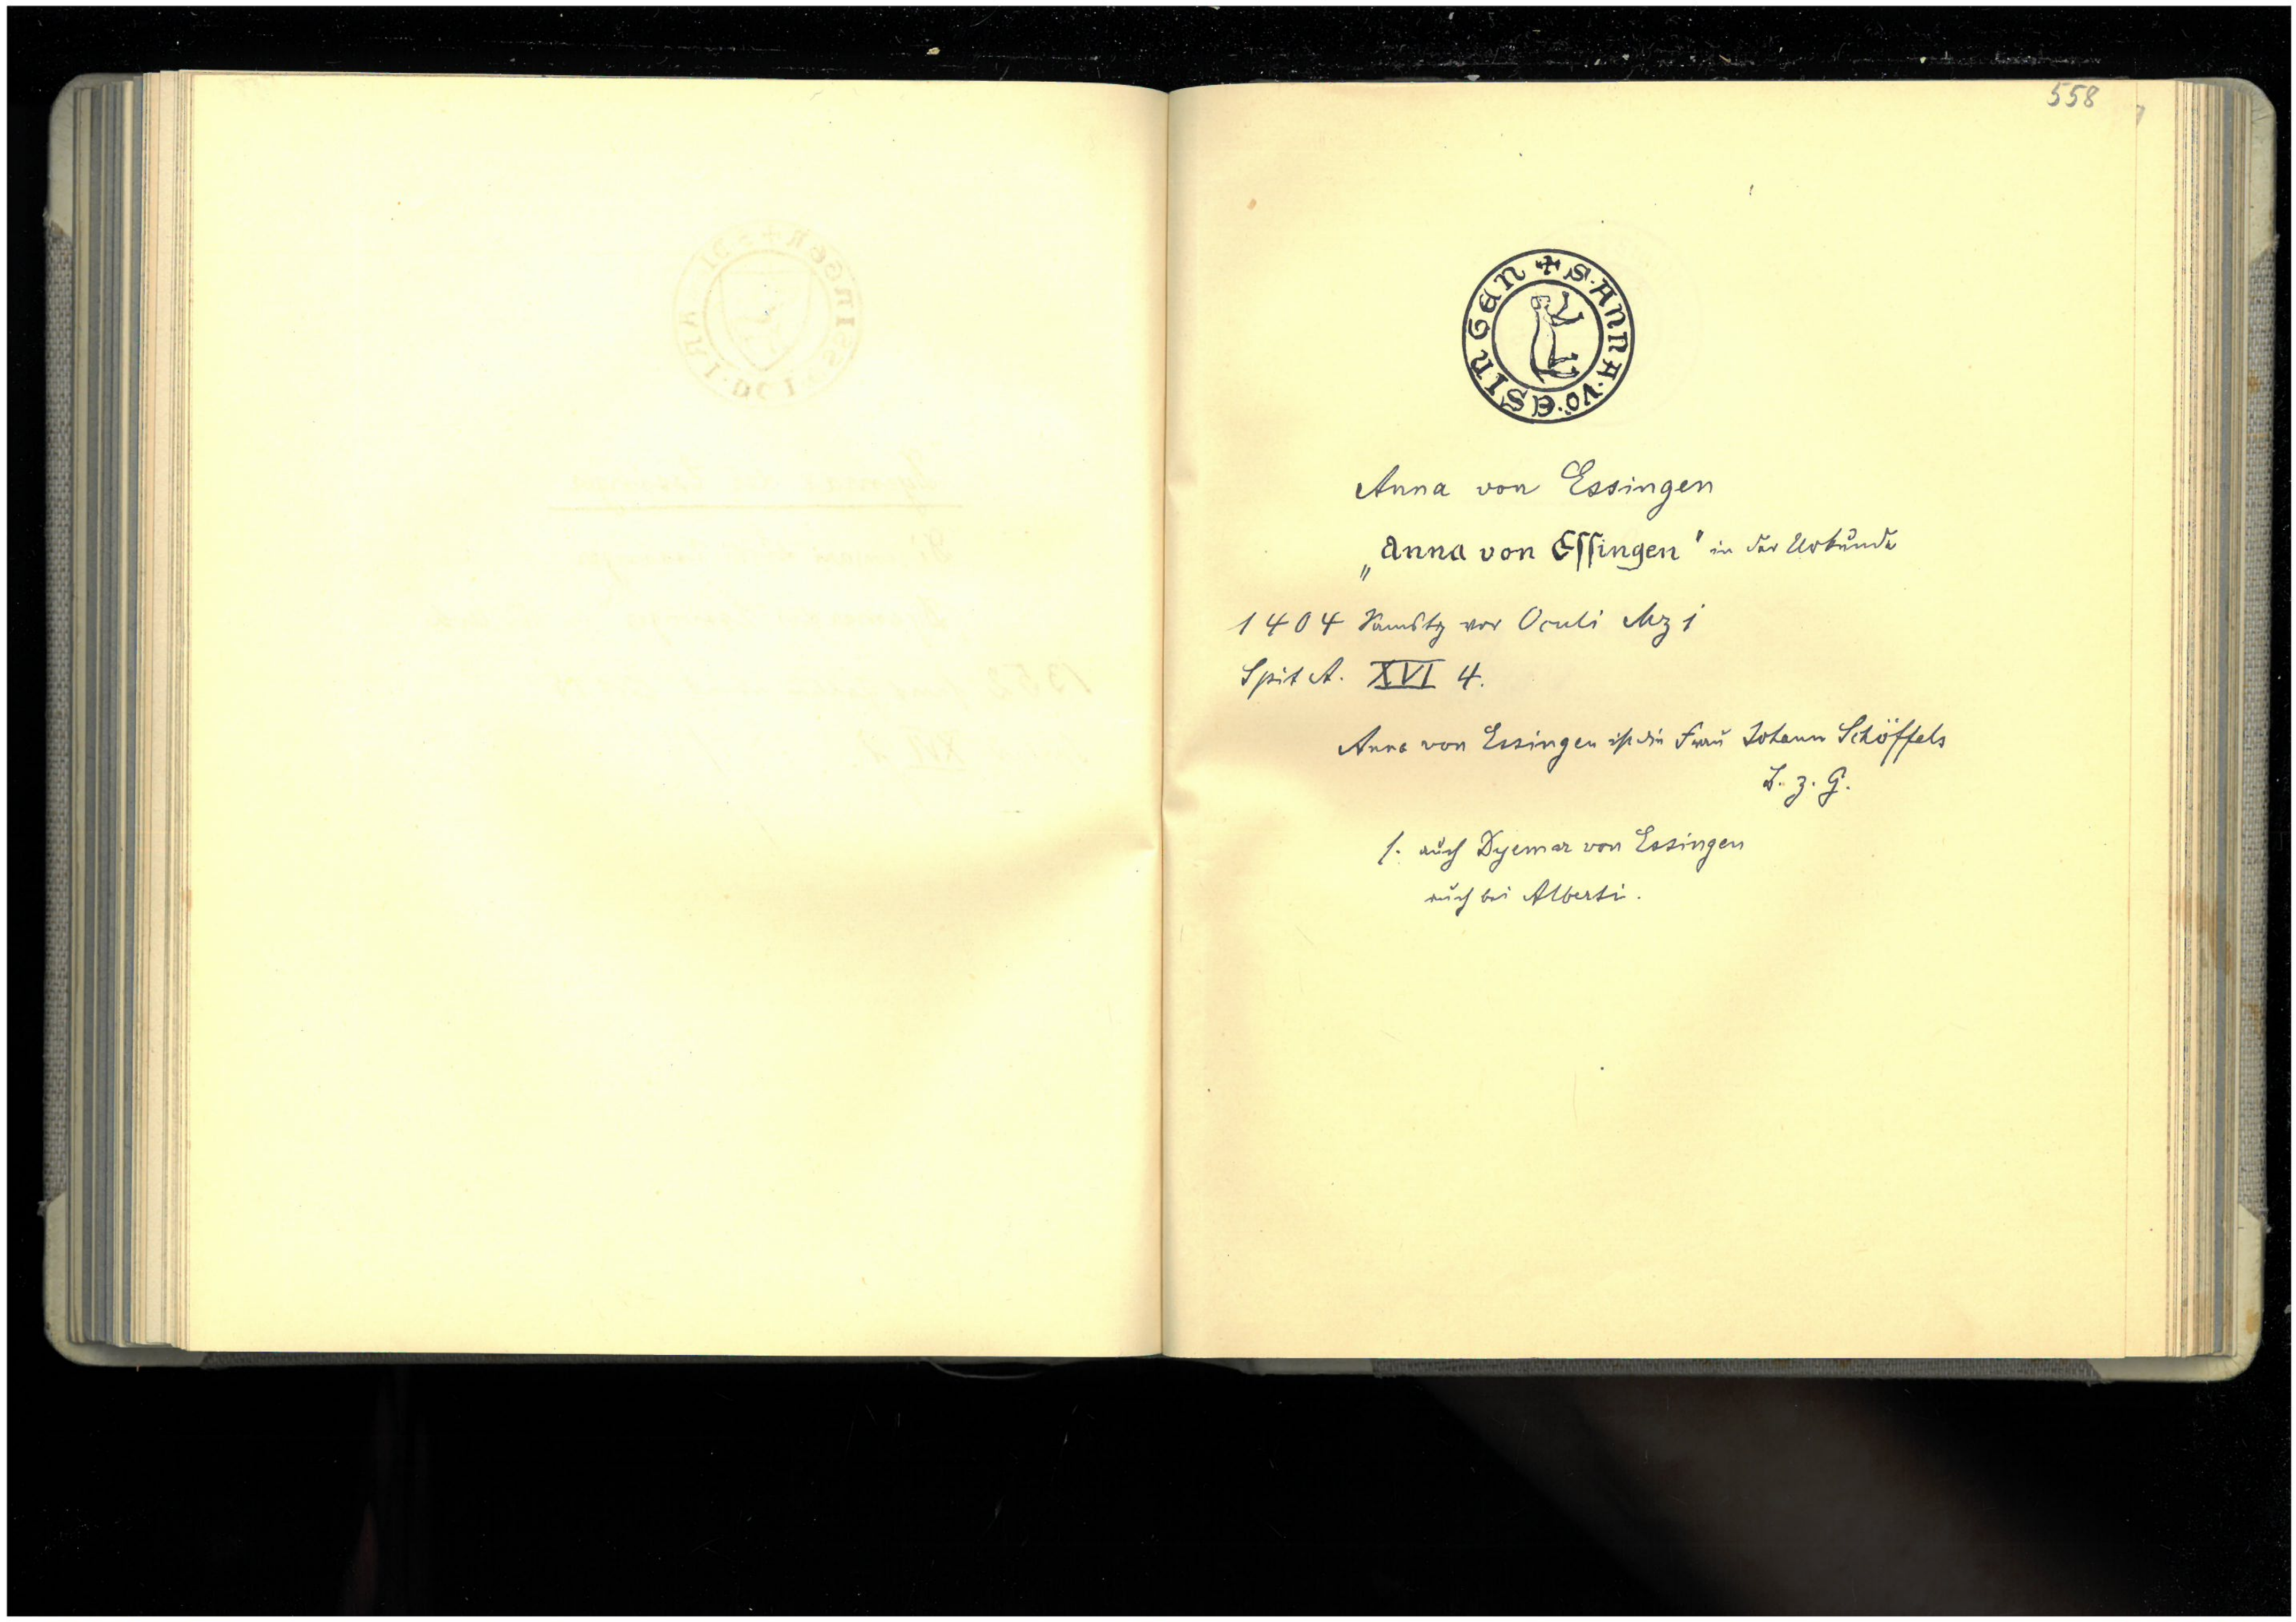 558
✠ S · ANNA · VÕ · ESINGEN
Anna von Essingen
„Anna von Eſſingen" in der Urkunde
1404 Samstg vor Oculi Mz 1
Spit A. XVI 4.
Anna von Essingen ist die Frau Johann Schöffels
B. z. G.
s. auch Dyemar von Essingen
auch bei Alberti.